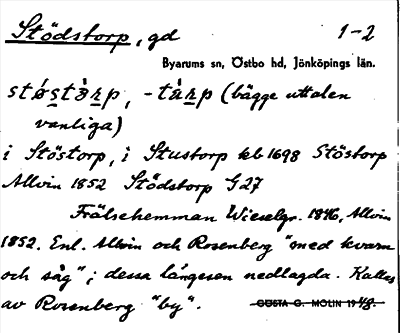 Stödstorp, gd 1-2
Byarums sn, Östbo hd, Jönköpings län.
stǿstò̱ṟp, -tàṟp (bägge uttalen
vanliga)
i Stöstorp, i Stustorp kb 1698 Stöstorp
Allvin 1852 Stödstorp G27
Frälsehemman Wieselgr. 1846, Allvin
1852. Enl. Allvin och Rosenberg "med kvarn
och såg"; dessa längesen nedlagda. Kallas
av Rosenberg "by".
GÖSTA G. MOLIN 1948.